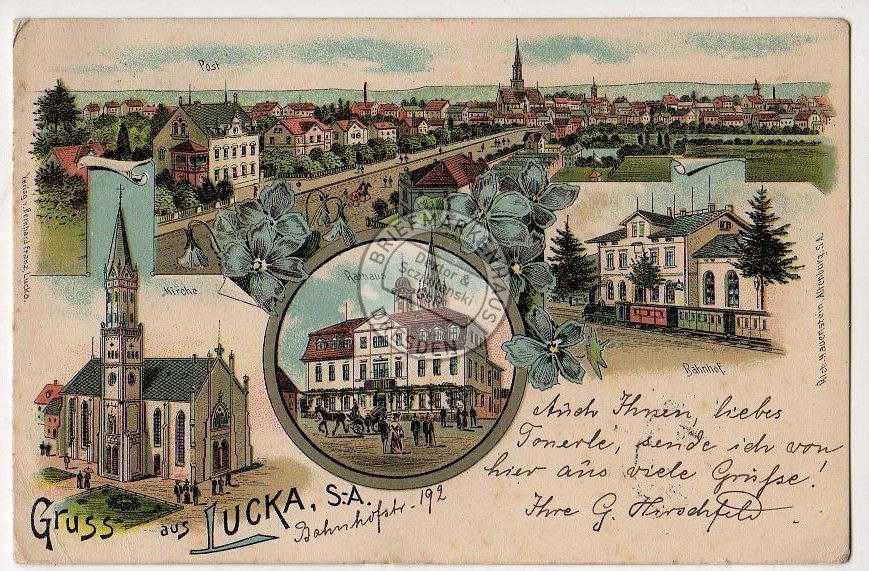 Post
Verlag v. Bernhard Franz, Lucka.
Kirche.
Rathaus
BRIEFMARKENHAUS
Doktor &
DRESDEN
Bahnhof.
Rich. Hauenstein, Altenburg, S.A.
Auch Ihnen, liebes
Tonerle, sende ich von
hier aus viele Grüsse!
Ihre G. Hirschfeld
Gruss aus LUCKA, S.-A.
Bahnhofstr. 192